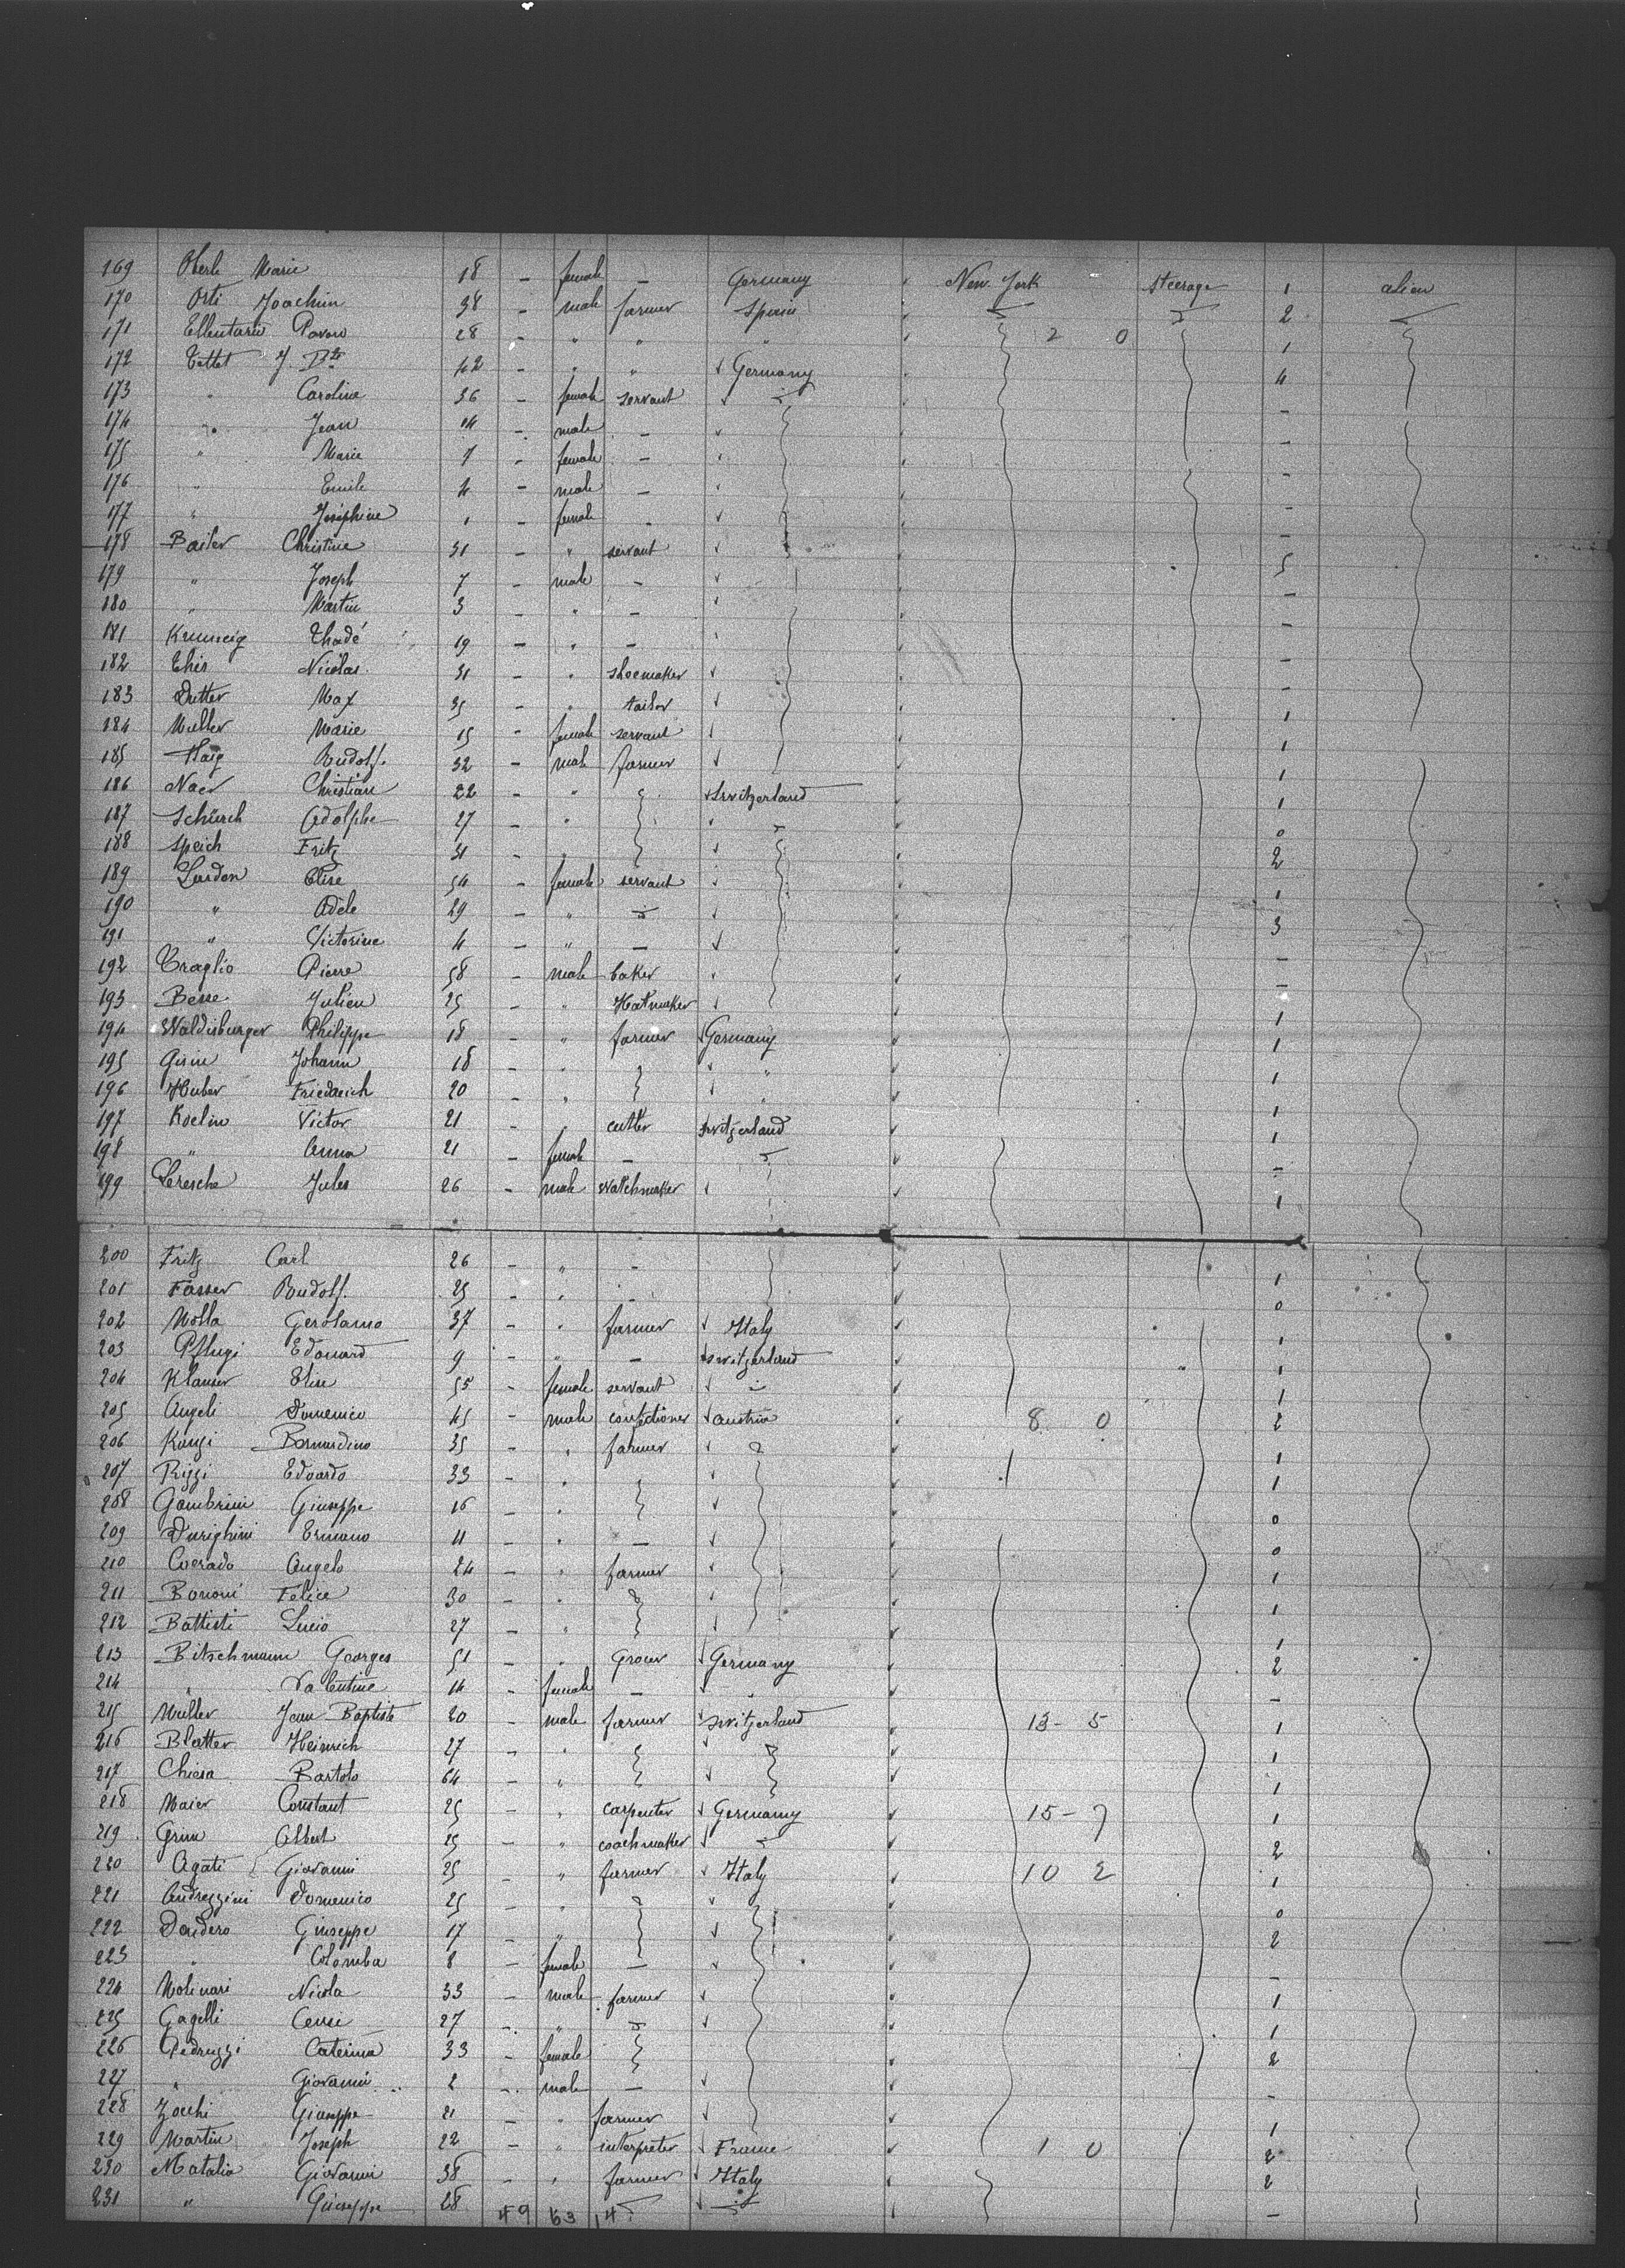 169 Oberle Marie 18 - female - Germany New York steerage 1 alien
170 Orti Joachim 38 - male farmer Spain 2
171 28 - " " " 2 0 1
172 Tettet J. Bte 42 - " " Germany 4
173 " Caroline 36 - female servant -
174 " Jean 14 - male - -
175 " Marie 7 - female - -
176 " Emile 4 - male - -
177 " Joséphine 1 - female - -
178 Bailer Christine 31 - " servant 5
179 " Joseph 7 - male - -
180 " Martin 3 - " - -
181 Thadé 19 - " - -
182 Ehis Nicolas 31 - " shoemaker -
183 Dutter Max 35 - " tailor 1
184 Muller Marie 15 - female servant 1
185 Haig Rudolf. 32 - male farmer 1
186 Naer Christian 22 - " Switzerland 1
187 Schürch Adolphe 27 - " 0
188 Speich Fritz 31 - " 2
189 Lardon Elise 54 - female servant 1
190 " Adèle 29 - " 3
191 " Victorine 4 - " - -
192 Traglio Pierre 58 - male baker -
193 Besse Julien 25 - " Hatmaker 1
194 Waldisburger Philippe 18 - " farmer Germany 1
195 Johann 18 - " " 1
196 Huber Friedrich 20 - " " 1
197 Koelin Victor 21 - " cutler Switzerland 1
198 " Anna 21 - female - -
199 Leresche Jules 26 - male watchmaker 1
200 Fritz Carl 26 - " - 1
201 Fasser Rudolf. 25 - " - 0
202 Molla Gerolamo 37 - " farmer Italy 1
203 Pflugi Edouard 9 - " - Switzerland 1
204 Klauser Elise 55 - female servant 1
205 Angeli Domenico 45 - male confectioner Austria 8 0 2
206 Bernardino 35 - " farmer 1
207 Rizzi Edoardo 33 - " 1
208 Gambrini Giuseppe 16 - " 0
209 Durighini Ermano 11 - " - 0
210 Corrado Angelo 24 - " farmer 1
211 Bononi Felice 30 - " 1
212 Battisti Lucio 27 - " 1
213 Bitschmann Georges 51 - " Germany 2
214 " Valentine 14 - female - " -
215 Muller Jean Baptiste 20 - male farmer Switzerland 13 - 5 1
216 Blatter Heinrich 27 - " 1
217 Chiesa Bartolo 64 - " 1
218 Maier Constant 25 - " carpenter Germany 15 - 7 1
219 Grun Albert 25 - " coachmaker 2
220 Agati Giovanni 25 - " farmer Italy 10 2 1
221 Andrezzini Domenico 25 - " 0
222 Dondero Giuseppe 17 - " 2
223 " Colomba 8 - female - -
224 Molinari Nicola 33 - male farmer 1
225 Gagelli 27 - " 1
226 Pedruzzi Caterina 33 - female 2
227 " Giovanni 2 - male - -
228 Zocchi Giuseppe 21 - " farmer 1
229 Martin Joseph 22 - " interpreter France 1 0 2
230 Matalia Giovanni 38 - " farmer Italy 2
231 " Giuseppe 28 -
49 63 14